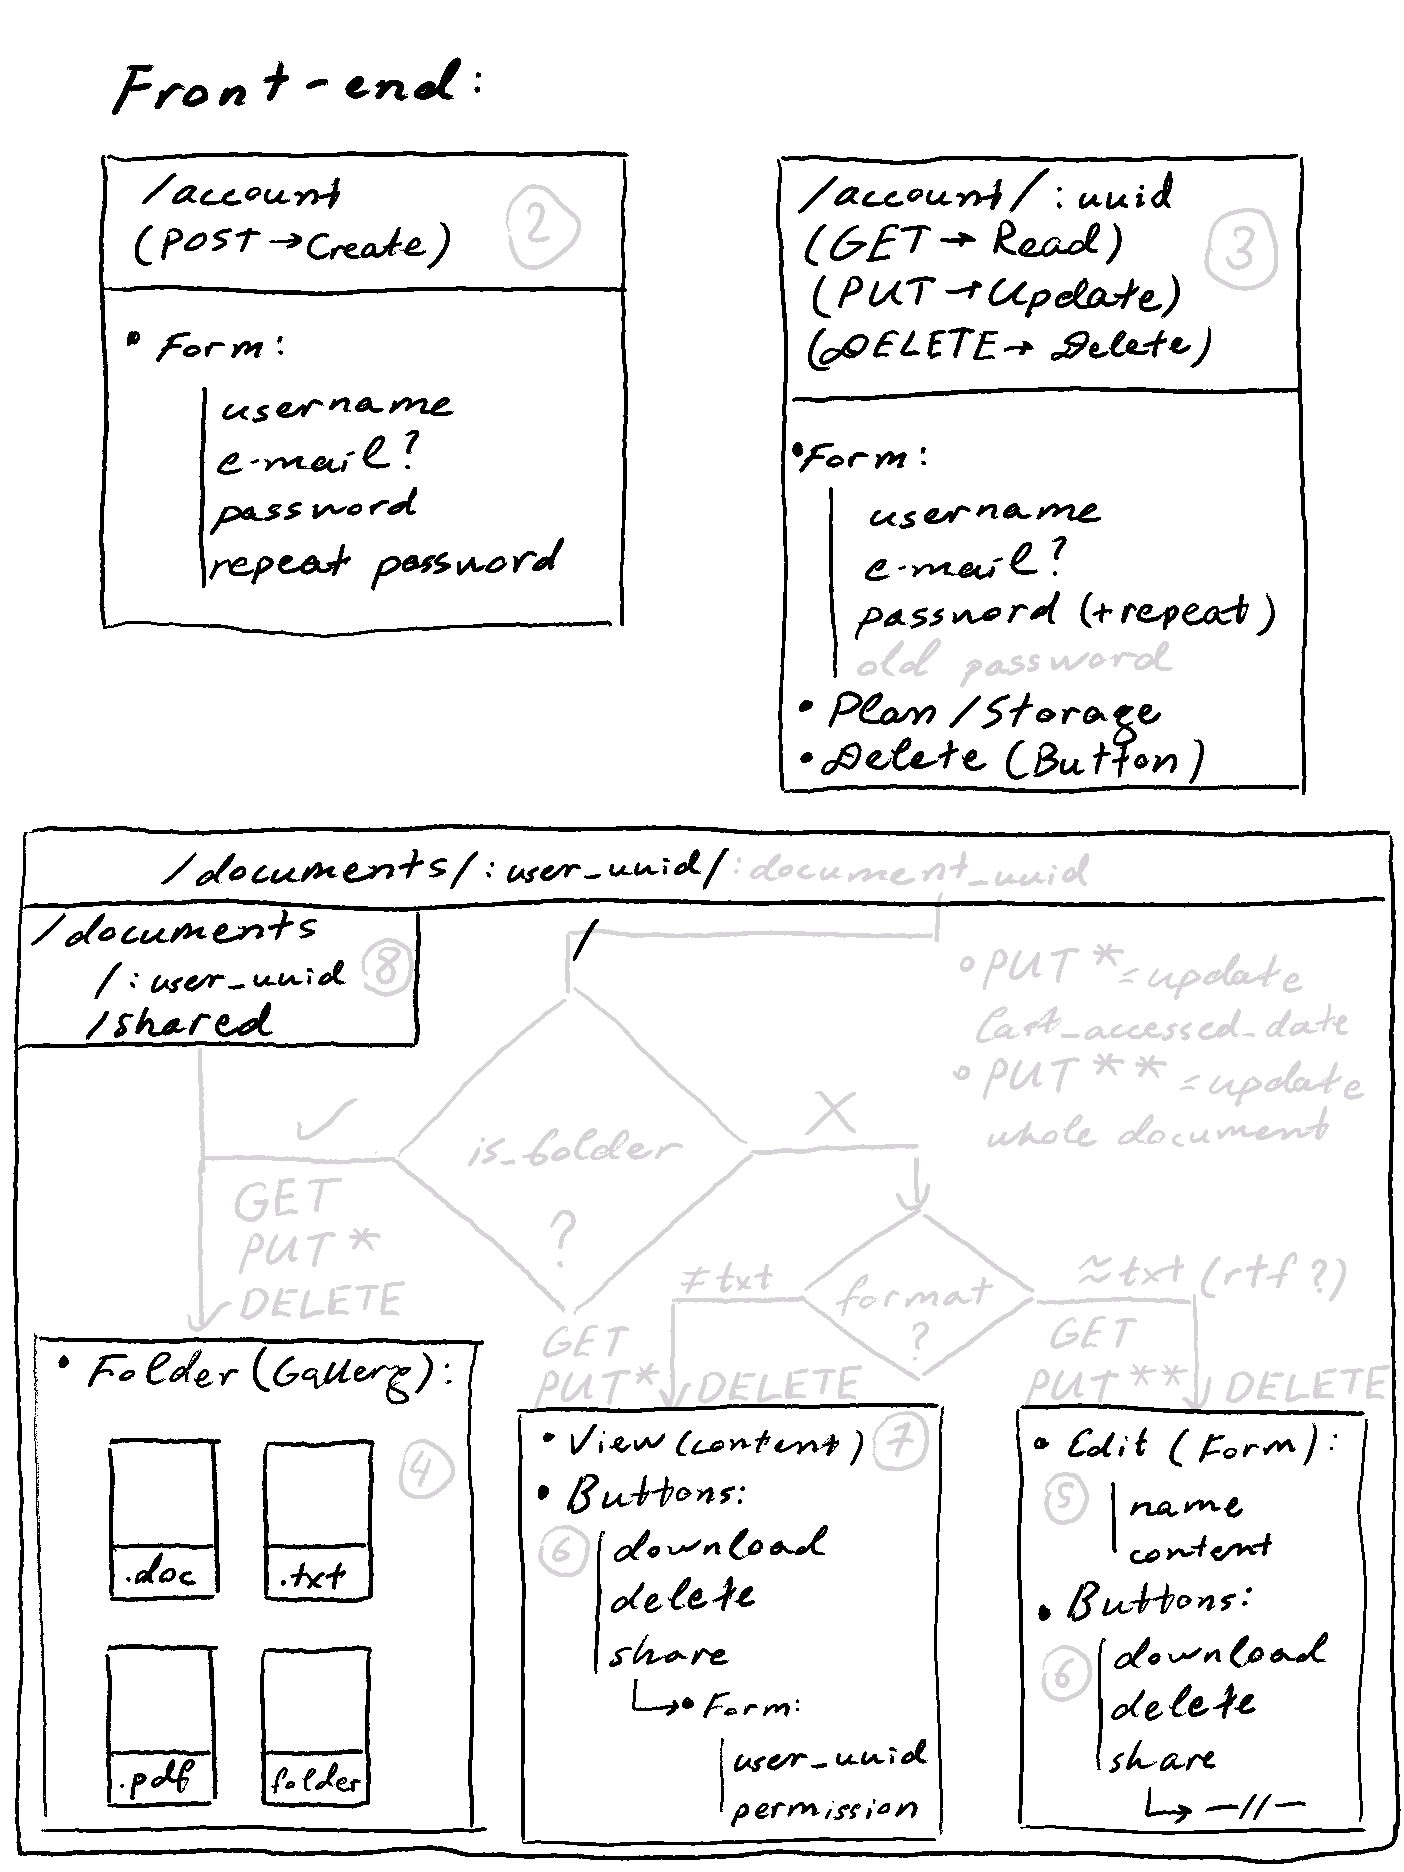 Front-end:
/account
(POST → Create)
2
• Form:
username
e-mail?
password
repeat password
/account/:uuid
(GET → Read)
(PUT → Update)
(DELETE → Delete)
3
• Form:
username
e-mail?
password (+repeat)
old password
• Plan/Storage
• Delete (Button)
/documents/:user_uuid/:document_uuid
/documents
/:user_uuid
/shared
8
/
• PUT * = update
last_accessed_date
• PUT ** = update
whole document
✓
is_folder
?
X
GET
PUT *
DELETE
≠txt
format
?
≈txt (rtf?)
GET
PUT* DELETE
GET
PUT ** DELETE
• Folder (Gallery):
4
.doc
.txt
.pdf
folder
• View (content)
7
• Buttons:
6
download
delete
share
↳ • Form:
user_uuid
permission
• Edit (Form):
5
name
content
• Buttons:
6
download
delete
share
↳ —//—